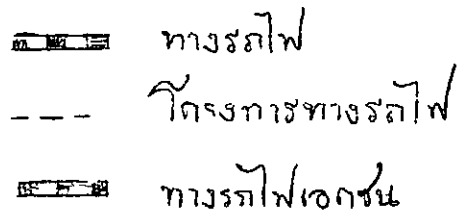 ทางรถไฟ
โครงการทางรถไฟ
ทางรถไฟเอกชน